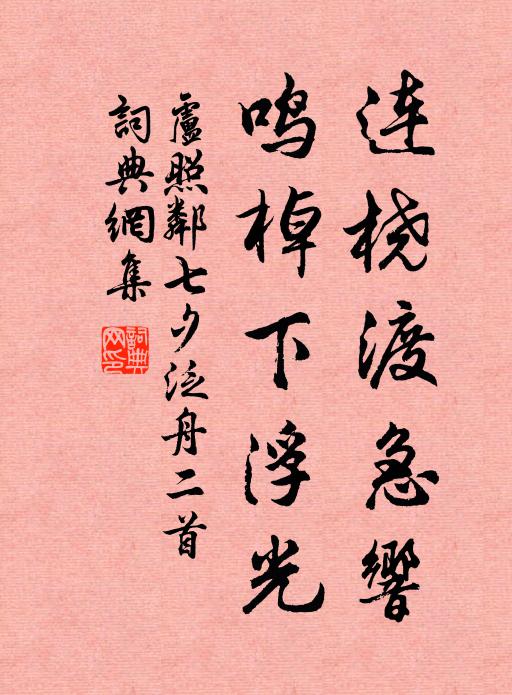 连桡渡急響
鸣棹下浮光
盧照鄰七夕泛舟二首
詞典網集
詞典網印